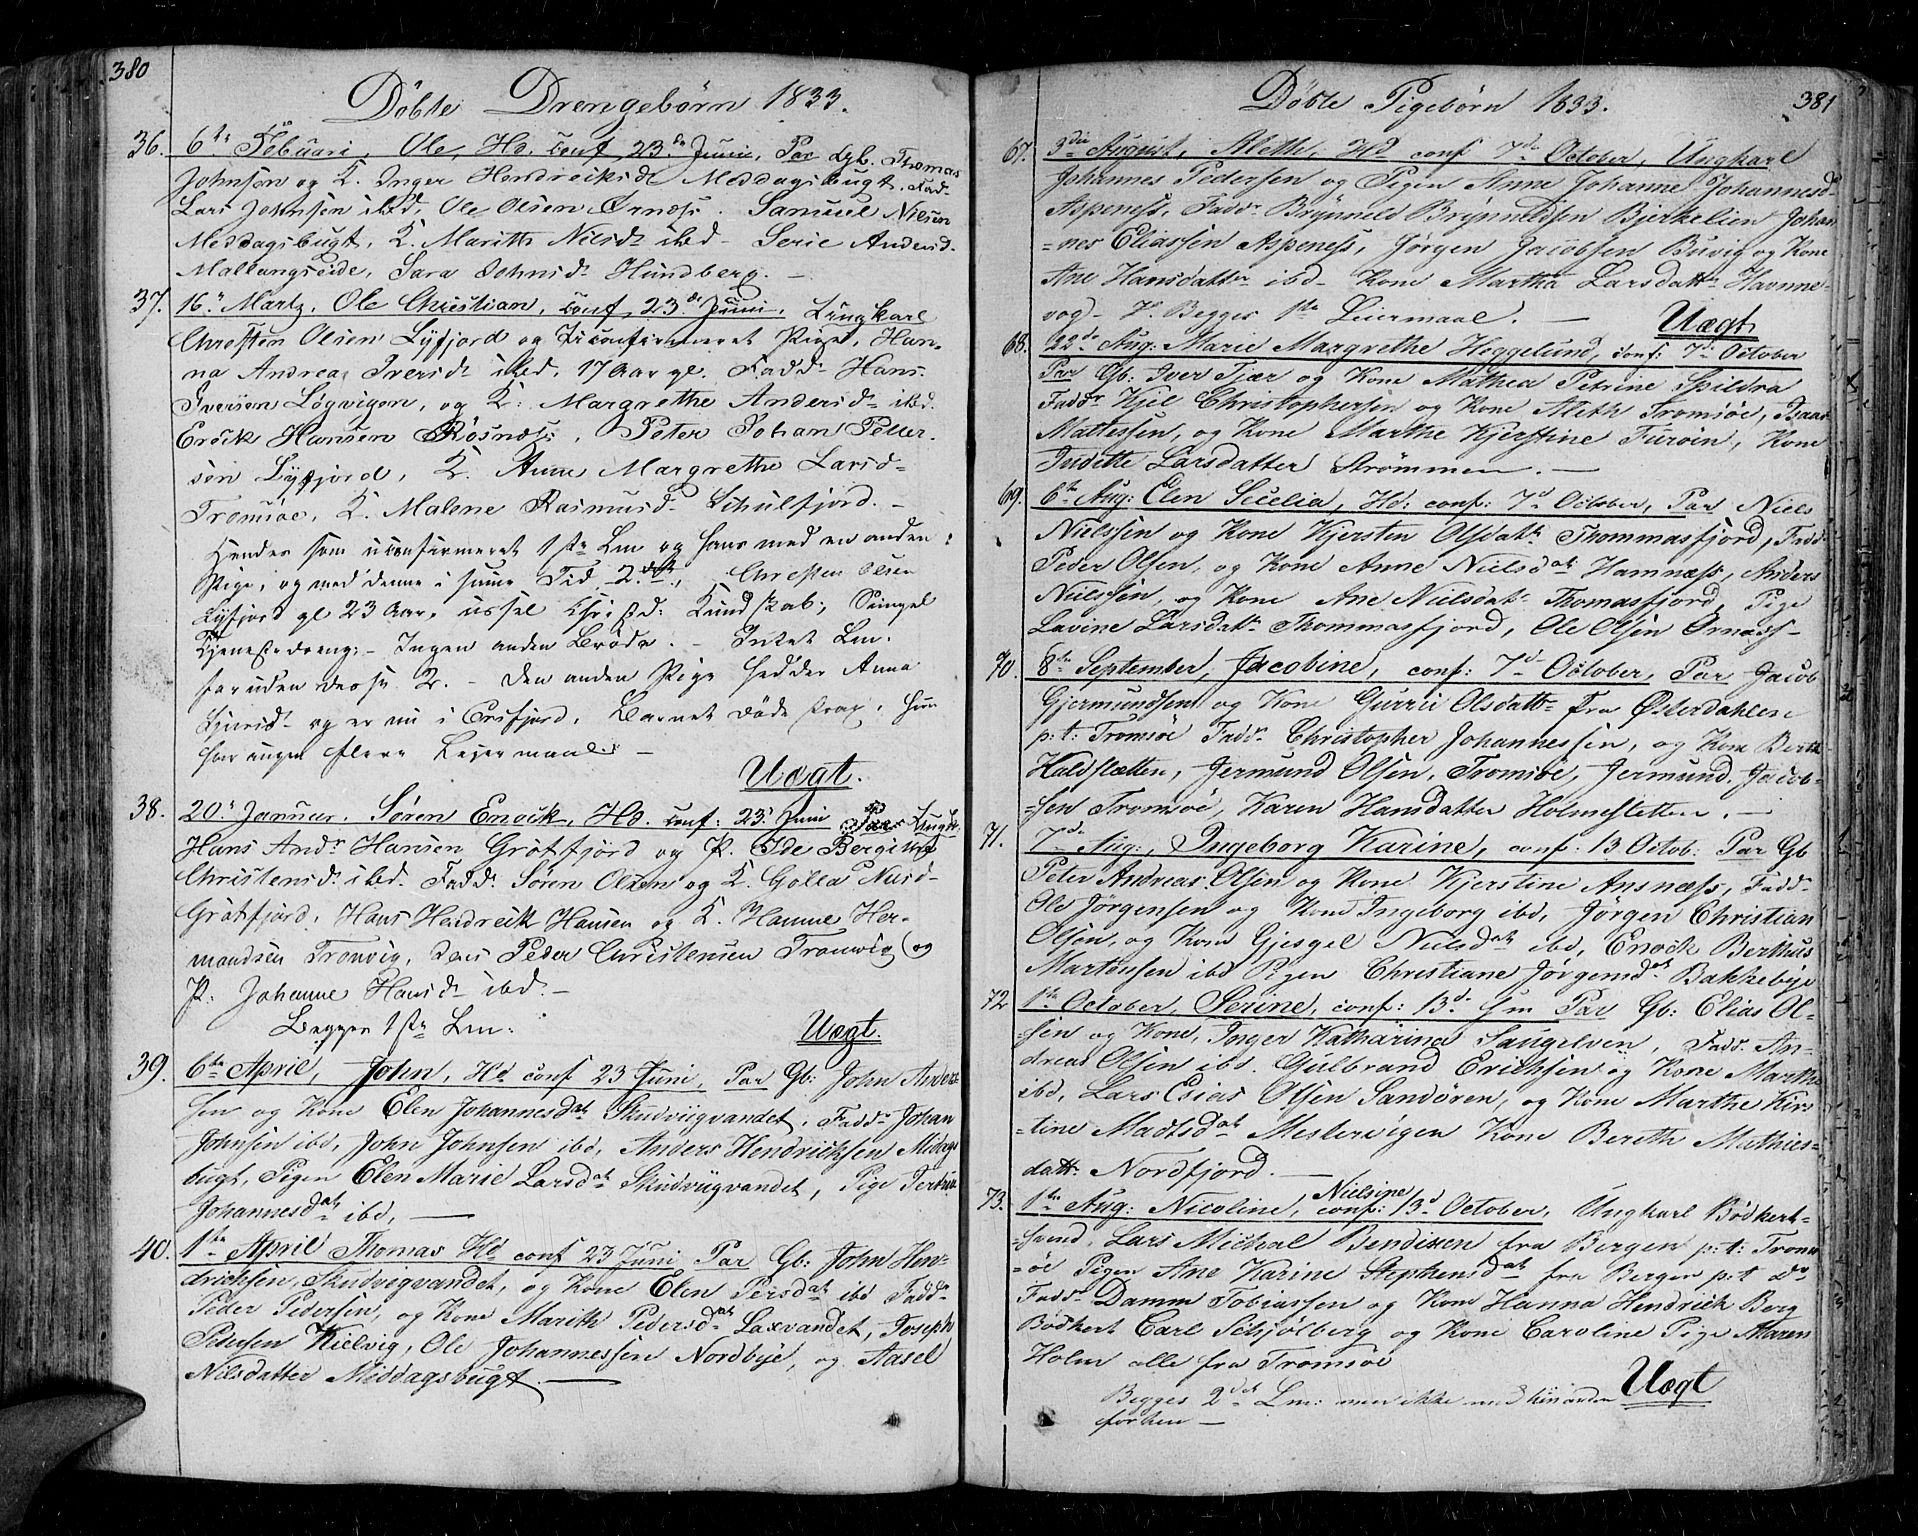 380
Döbte Drengebörn 1833.
36. 6te Febuari, Ole, Hd. conf 23de Juni, Par Gb. Thomas
Johnsen og K. Inger Hendreiksdr Meddagsbugt, Fad.
Lars Johnsen ibd, Ole Olsen Örnæss. Samuel Nilsen
Meddagsbugt, K. Marith Nilsdr ibd - Serie Andersd.
Mallangseide, Sara Johnsdr Hundberg. -
37. 16de Martz, Ole Christian, conf 23de Juni, Ungkarl
Chresten Olsen Lyfjord og uconfirmeret Pige, Han-
na Andrea Iversdr ibd, 17 Aar gl. Fadd. Hans
Iversen Løgvigen, og K. Margrethe Andersdr ibd.
Enoik Hansen Røsnæs, Peter Johan Petter-
sen Lyfjord, K. Anne Margrethe Larsd-
Tromsøe, K. Malene Rasmusd. Schulfjord. -
Hendes som uconfirmeret 1ste Lm og hans med en anden
Pige, og med denne i samme Tid 2det, Chresten Olsen
Lyfjord gl 23 Aar, ussel Christd: Kundskab; Simpel
Tjenestedreng; - Ingen anden Brøde. - Intet Lm.
foruden desse 2. - Den anden Pige hedder Anna
og er nu i Ersfjord, Barnet døde strax, hun
har ingen flere Leiermaal. -
Uægt.
38. 20de Januar, Søren Enoik, Hd. conf: 23de Juni Par Ungk.
Hans Andr Hansen Grötfjord og P. Ide Bergitha
Christensdr ibd. Fadd. Søren Olsen og K. Golla Nilsd-
Grötfjord, Hans Hendreik Hansen og K. Hanne Her-
mandsen Tromvig, Peder Christensen Tromvig og
P. Johanne Hansdr ibd. -
Begges 1ste Lm.
Uægt.
39. 6te April, John, Hd conf 23 Juni, Par Gb: John Anders-
sen og Kone Elen Johannesdat Skudviigvandet, Faddr Johan
Johnsen ibd, John Johnsen ibd, Anders Hendricksen Middags-
bugt, Pigen Elen Marie Larsdat Skudviigvandet, Pige
Johannesdat ibd, -
40. 1te April Thomas Hd conf 23 Juni Par Gb: John Hen-
drichsen Skudvigvandet, og Kone Elen Persdat ibd Faddr
Peder Pedersen, og Kone Marith Pedersdat Laxvandet, Joseph
Kielvig, Ole Johannessen Nordbye, og Aasel
Nilsdatter Middagsbugt. -
381
Döbte Pigebörn 1833.
67. 3die August, Aleth, Hd conf 7de October, Ungkarl
Johannes Pedersen og Pigen Anne Johanne Johannesd
Aspeness, Faddr Brynneld Brynneldsen Bjerkelien Johan
=nes Eliassen Aspeness, Jørgen Jacobsen Buvig og Kone
Ane Hansdatter ibd - Kone Martha Larsdatter Havnne-
vog - Begges 1te Leiermaal. -
Uægt
68. 22de Aug: Marie Margrethe Heggelund, conf: 7de October
Par Gb: Iver Fjær og Kone Mathea Petrine Spildra
Faddr Kjel Christophersen og Kone Aleth Tromsøe, Isaac
Mattessen, og Kone Marthe Kjerstine Turøin, Kone
Judithe Larsdatter Strømmen. -
69. 6te Aug: Elen Sicelia, Hd: conf: 7d October, Par Niels
Nielssen og Kone Kjersten Olsdatr Thommasfjord, Faddr
Peder Olsen, og Kone Anne Nielsdat Hamnæss, Anders
Nielssen, og Kone Ane Nielsdatr Thomasfjord, Pige
Lavine Larsdatr Thommasfjord, Ole Olsen Ornæss-
70. 8de September, Jacobine, conf: 7de October, Par Jacob
Gjermundsen og Kone Gurrie Olsdattr fra Østerdahlen
p: t: Tromsöe Faddr Christopher Johannessen, og Kone Berth
Haldslætten, Jermund Olsen, Tromsöe, Jermund Jacob-
=sen Tromsöe, Karen Hansdatter Holmesletten. -
71. 7de Aug:, Ingeborg Karine, conf: 13 Octob: Par Gb
Peter Andreas Olsen og Kone Kjerstine Ansnæss, Fadd.
Ole Jörgensen og Kone Ingeborg ibd, Jörgen Christian
Olsen, og Kone Gjesgel Nielsdat ibd, Enoik Berthus
Martensen ibd Pigen Christiane Jörgensdat Bakkebye
72. 1te October, Serine, conf: 13de Gm Par Gb: Elias Ol-
=sen og Kone, Inger Katharina Saugelven, Fadd. An-
dreas Olsen ibd. Gulbrand Ericksen og Kone Marthe
ibd, Lars Esias Olsen Sandören, og Kone Marthe Kirs
=tine Madtsdat Mestervigen Kone Bereth Mathies-
datt: Nordfjord. -
73. 1te Aug: Nicoline, Nielsine conf: 13d October, Ungkarl Bödker-
=svend, Lars Michal Bendixen fra Bergen p: t: Troms
=öe Pigen Ane Karine Stephensdat fra Bergen p: t
Faddr Damm Tobiassen og Kone Hanna Hendrick Berg
Bödkert Carl Schjölberg og Kone Caroline Pige Maren
Holm alle fra Tromsöe
Uægt
Begges 2det Lm: men ikke med hinanden
forhen -